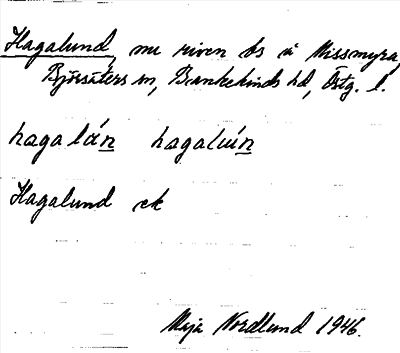 Hagalund, nu riven bs å Missmyra,
Björsäters sn, Bankekinds hd, Östg. l.
hagalán hagalún
Hagalund ek
Maja Nordlund 1946.